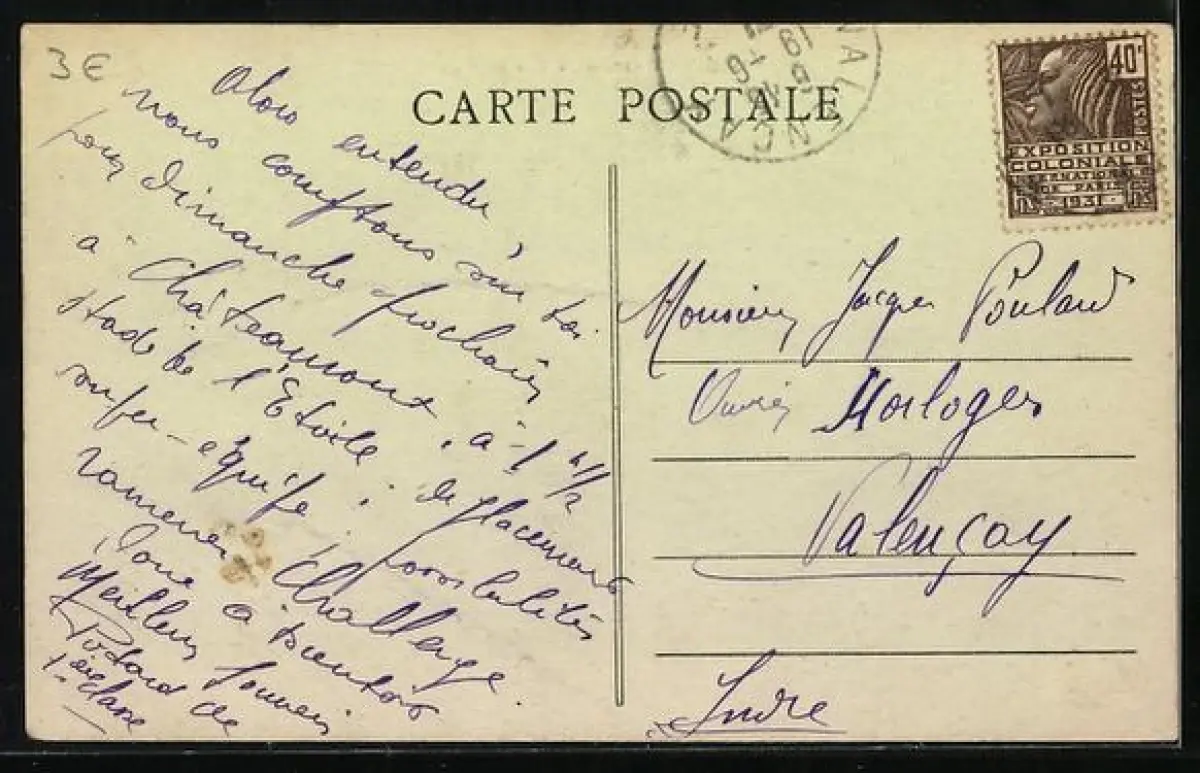 3 €
CARTE POSTALE
40c
POSTES
EXPOSITION
COLONIALE
INTERNATIONALE
DE PARIS
1931
Alors entendu,
nous comptons sur toi
pour Dimanche prochain
à Châteauroux, à 1 h 1/2
Stade de l'Etoile; déplacement
super-équipe; possibilités
ramener Challenge.
Donc à bientôt
Meilleur souvenir
de
1ère classe
Monsieur Jacques Poulard
Ouvrier Horloger
Valençay
Indre